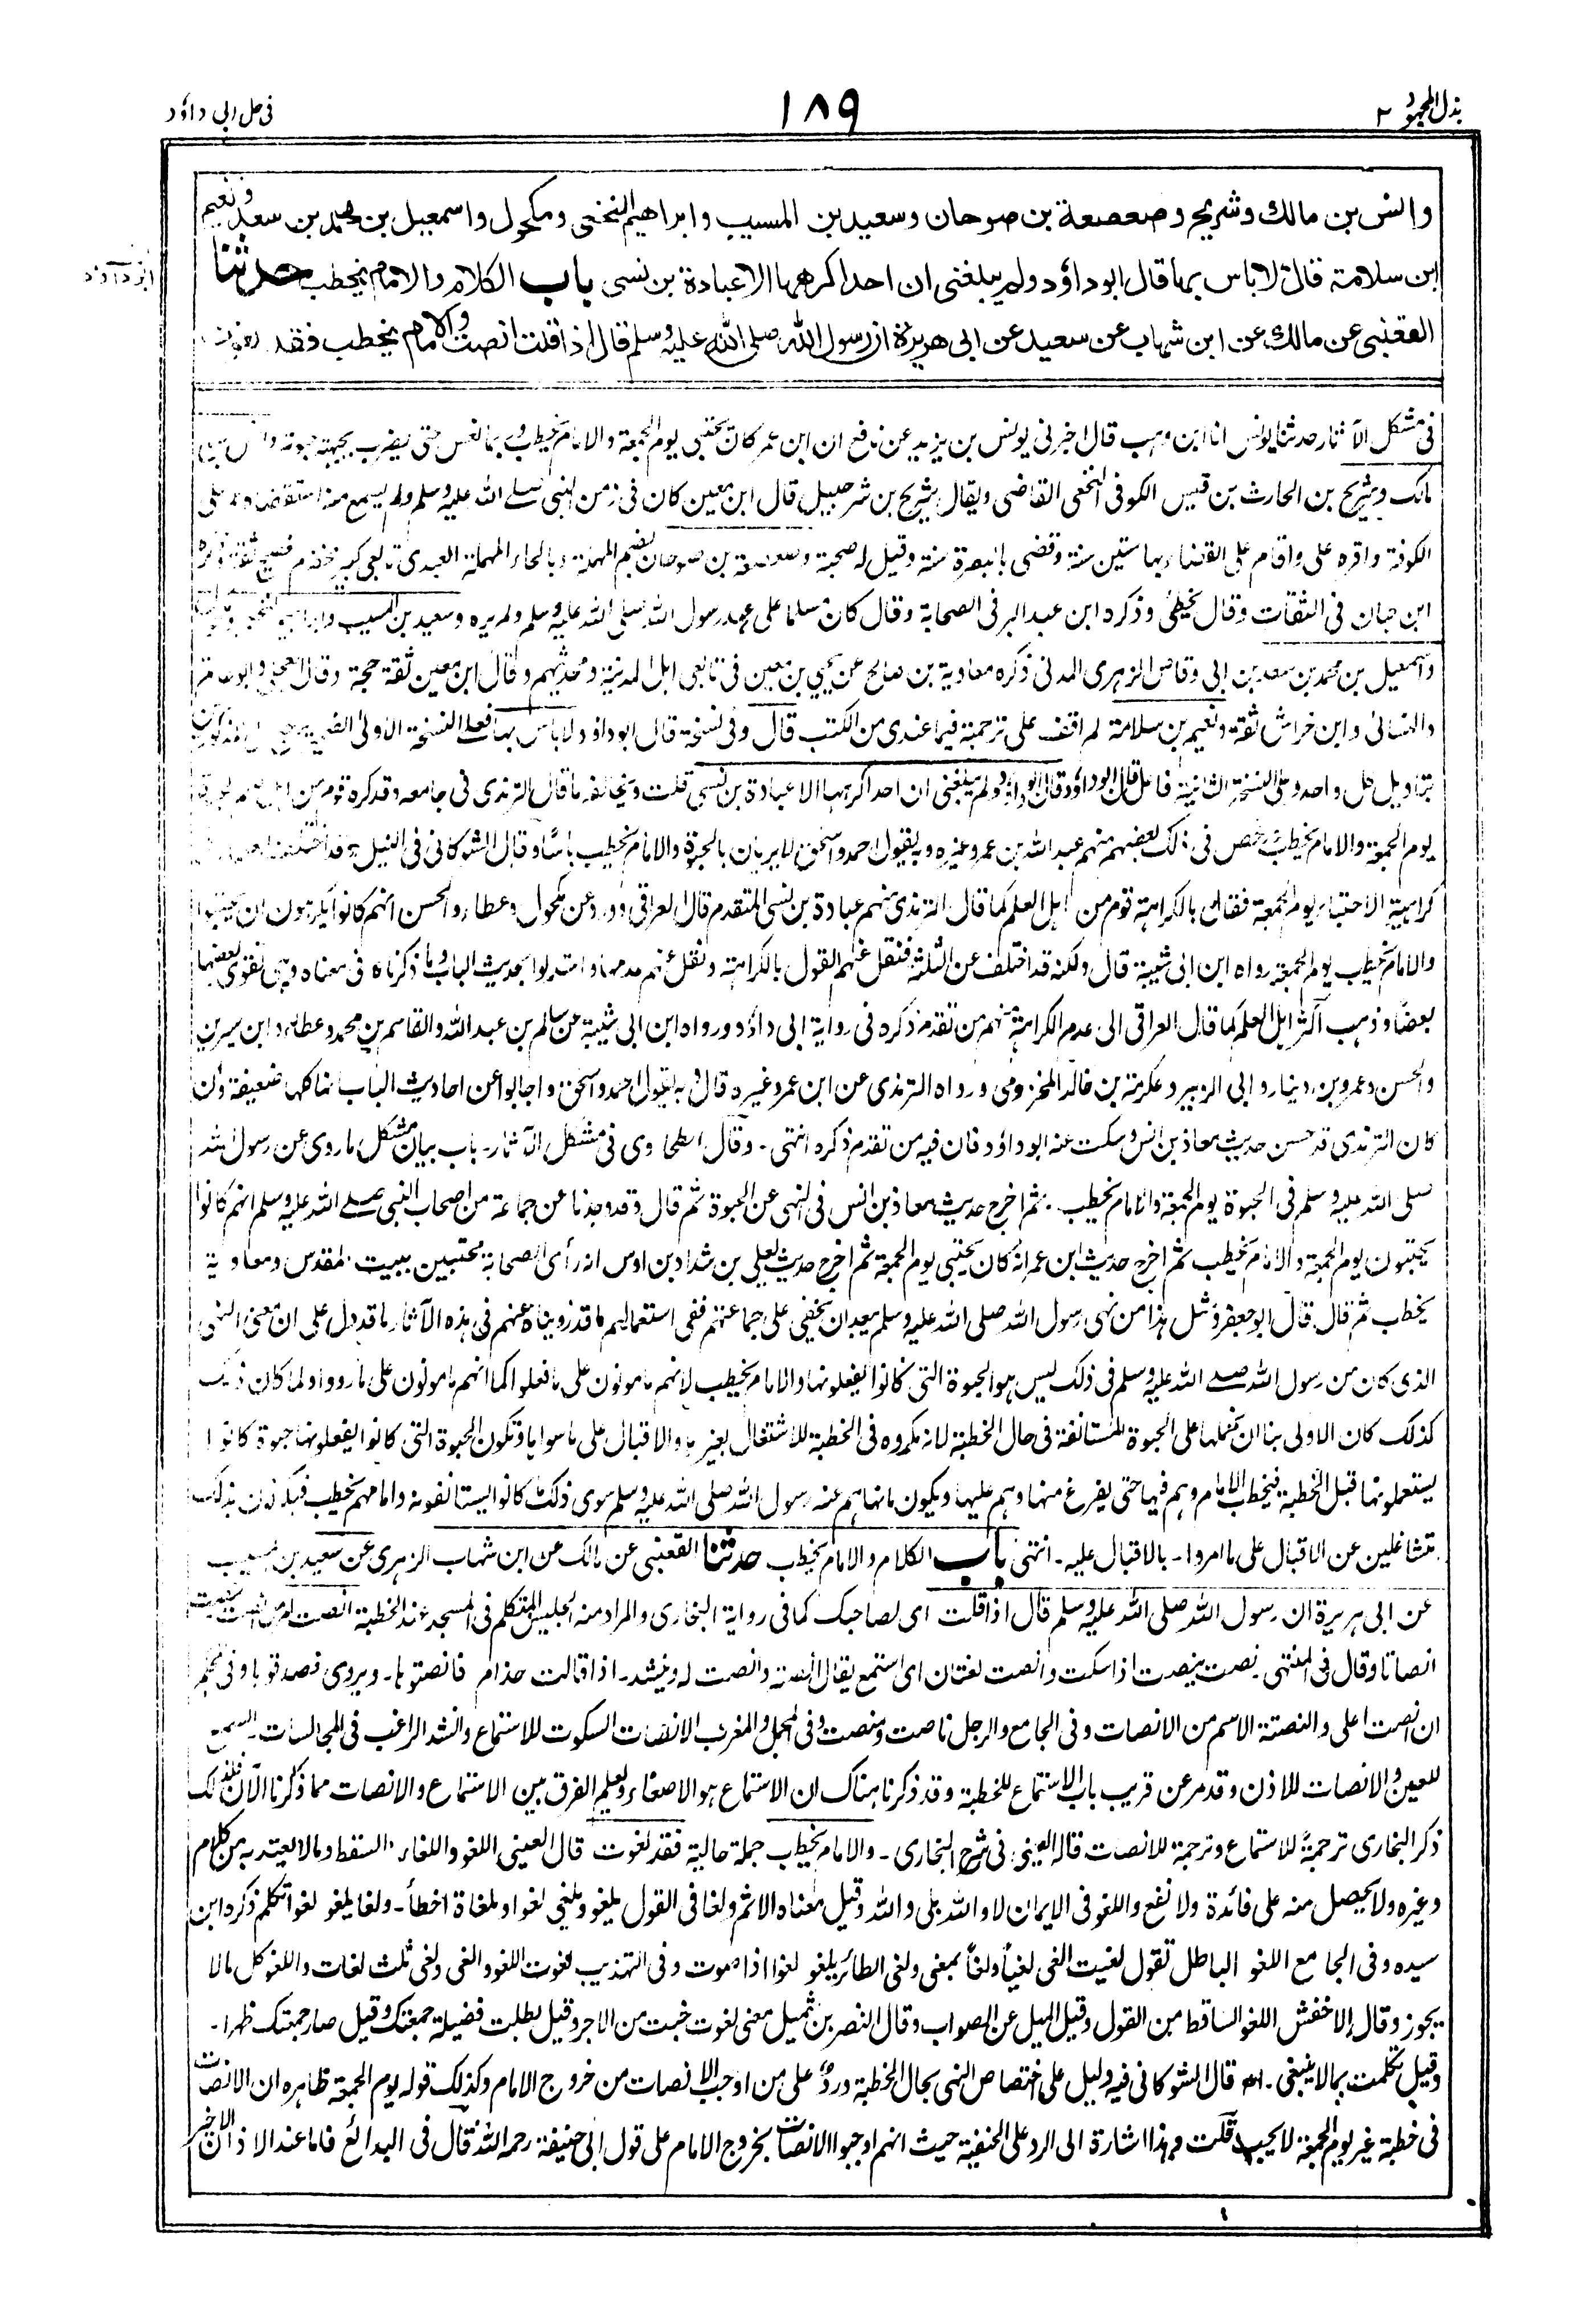 بذل المجهود ٢
١٨٩
في حل ابي داؤد
وانس بن مالك وشريح وصعصعة بن صوحان وسعيد بن المسيب وابراهيم النخعي ومكحول واسمعيل بن محمد بن سعد ونعيم
ابن سلامة قال لا باس بها قال ابو داؤد ولم يبلغني ان احدا كرهها الا عبادة بن نسي باب الكلام والامام يخطب حدثنا
القعنبي عن مالك عن ابن شهاب عن سعيد عن ابي هريرة ان رسول الله صلى الله عليه وسلم قال اذا قلت انصت والامام يخطب فقد لغوت
في مشكل الآثار حدثنا يونس انا ابن وهب قال اخبرني يونس بن يزيد عن نافع ان ابن عمر كان يحتبي يوم الجمعة والامام يخطب وربما نعس حتى يضرب بجبهته حبوته وانس بن
مالك وشريح بن الحارث بن قيس الكوفي النخعي القاضي ويقال شريح بن شرحبيل قال ابن معين كان في زمن النبي صلے الله عليه وسلم ولم يسمع منه استقضاه عمر على
الكوفة واقره على واقام على القضاء بها ستين سنة وقضى بالبصرة سنة وقيل له صحبة وصعصعة بن صوحان بضم المهملة وبالحاء المهملة العبدي تابعي كبير مخضرم فصيح ثقة ذكره
ابن حبان في الثقات وقال يخطئ وذكره ابن عبد البر في الصحابة وقال كان مسلما على عهد رسول الله صلى الله عليه وسلم ولم يره وسعيد بن المسيب وابراهيم النخعي
واسمعيل بن محمد بن سعد بن ابي وقاص الزهري المدني ذكره معاوية بن صالح عن يحيى بن معين في تابعي اهل المدينة ومحدثيهم وقال ابن معين ثقة حجة وقال العجلي وابو حاتم
والنسائي وابن خراش ثقة ونعيم بن سلامة لم اقف على ترجمة فيما عندي من الكتب قال وفي نسخة قال ابو داؤد لا باس بها فعلى النسخة الاولى الضمير يرجع الى المذكورين
بتاويل كل واحد وعلى النسخة الثانية فاعل قال ابو داؤد قال ابو داؤد ولم يبلغني ان احدا كرهها الا عبادة بن نسي قلت ويخالفه ما قال الترمذي في جامعه وقد كره قوم من اهل العلم الحبوة
يوم الجمعة والامام يخطب ورخص في ذلك بعضهم منهم عبد الله بن عمر وغيره وبه يقول احمد واسحق لا يريان بالحبوة والامام يخطب باسا وقال الشوكاني في النيل وقد اختلف العلماء في
كراهية الاحتباء يوم الجمعة فقال بالكراهة قوم من اهل العلم كما قال الترمذي منهم عبادة بن نسي المتقدم قال العراقي وورد عن مكحول وعطاء والحسن انهم كانوا يكرهون ان يحتبوا
والامام يخطب يوم الجمعة رواه ابن ابي شيبة قال ولكنه قد اختلف عن الثلثة فنقل عنهم القول بالكراهة ونقل عنهم عدمها واستدلوا بحديث الباب وما ذكرناه في معناه وهي تقوي بعضها
بعضا وذهب اكثر اهل العلم كما قال العراقي الى عدم الكراهة منهم من تقدم ذكره في رواية ابي داؤد ورواه ابن ابي شيبة عن سالم بن عبد الله والقاسم بن محمد وعطاء وابن سيرين
والحسن وعمرو بن دينار وابي الزبير وعكرمة بن خالد المخزومي ورواه الترمذي عن ابن عمر وغيره قال وبه يقول احمد واسحق واجابوا عن احاديث الباب انها كلها ضعيفة وان
كان الترمذي قد حسن حديث معاذ بن انس وسكت عنه ابو داؤد فان فيه من تقدم ذكره انتهى۔ وقال الطحاوي في مشكل الآثار۔ باب بيان مشكل ما روي عن رسول الله
صلى الله عليه وسلم في الحبوة يوم الجمعة والامام يخطب۔ ثم اخرج حديث معاذ بن انس في النهي عن الحبوة ثم قال وقد وجدنا عن جماعة من اصحاب النبي صلے الله عليه وسلم انهم كانوا
يحتبون يوم الجمعة والامام يخطب ثم اخرج حديث ابن عمر انه كان يحتبي يوم الجمعة ثم اخرج حديث يعلى بن شداد بن اوس انه رأى الصحابة محتبين ببيت المقدس ومعاوية
يخطب ثم قال قال ابو جعفر ومثل هذا من نهي رسول الله صلى الله عليه وسلم يبعد ان يخفى على جماعتهم ففي استعمالهم ما قد رويناه عنهم في هذه الآثار ما قد دل على ان معنى النهي
الذي كان من رسول الله صلے الله عليه وسلم في ذلك ليس هو الحبوة التي كانوا يفعلونها والامام يخطب لانهم مامونون على ما فعلوا كما انهم مامونون على ما رووا ولما كان ذلك
كذلك كان الاولى بنا ان نحملها على الحبوة المستانفة في حال الخطبة لانه مكروه في الخطبة للاشتغال بغيرها والاقبال على ما سواها وتكون الحبوة التي كانوا يفعلونها حبوة كانوا
يستعملونها قبل الخطبة فيخطب الامام وهم فيها حتى يفرغ منها وهم عليها ويكون ما نهاهم عنه رسول الله صلى الله عليه وسلم سوى ذلك مما كانوا يستانفونه وامامهم يخطب فيكونون بذلك
متشاغلين عن الاقبال على ما امروا۔ بالاقبال عليه۔ انتهى باب الكلام والامام يخطب حدثنا القعنبي عن مالك عن ابن شهاب الزهري عن سعيد بن مسيب
عن ابي هريرة ان رسول الله صلى الله عليه وسلم قال اذا قلت اي لصاحبك كما في رواية البخاري والمراد منه الجليس المتكلم في المسجد عند الخطبة انصت
انصاتا وقال في المنتهى نصت ينصت اذا سكت وانصت لغتان اي استمع يقال انصته وانصت له وينشد۔ اذا قالت حذام فانصتوها۔ ويروى فصدقوها وفي المحكم
ان انصت اعلى والنصتة الاسم من الانصات وفي الجامع والرجل ناصت ومنصت وفي المجمل والمغرب الانصات السكوت للاستماع وانشد الراغب في المجالسات۔ السمع
للعين والانصات للاذن وقد مر عن قريب باب الاستماع للخطبة وقد ذكرنا هناك ان الاستماع هو الاصغاء ولعلم الفرق بين الاستماع والانصات مما ذكرنا الآن فلذلك
ذكر البخاري ترجمة للاستماع وترجمة للانصات قاله العيني في شرح البخاري۔ والامام يخطب جملة حالية فقد لغوت قال العيني اللغو واللغاء السقط وما لا يعتد به من كلام
وغيره ولا يحصل منه على فائدة ولا نفع واللغو في الايمان لا والله بلى والله وقيل معناه الاثم ولغا في القول يلغو ويلغي لغوا وملغاة اخطأ۔ ولغا يلغو لغوا تكلم ذكره ابن
سيده وفي الجامع اللغو الباطل تقول لغيت الغى لغيا ولغا بمعنى ولغى الطائر يلغو لغوا اذا صوت وفي التهذيب لغوت اللغو والغى ولغى ثلث لغات واللغو كل ما لا
يجوز وقال الاخفش اللغو الساقط من القول وقيل الميل عن الصواب وقال النضر بن شميل معنى لغوت خبت من الاجر وقيل بطلت فضيلة جمعتك وقيل صار جمعتك ظهرا۔
وقيل تكلمت بما لا ينبغي۔ اه قال الشوكاني فيه دليل على اختصاص النهي بحال الخطبة ورد على من اوجب الانصات من خروج الامام وكذلك قوله يوم الجمعة ظاهره ان الانصات
في خطبة غير يوم الجمعة لا يجب قلت وهذا اشارة الى الرد على الحنفية حيث انهم اوجبوا الانصات بخروج الامام على قول ابي حنيفة رحمه الله قال في البدائع فاما عند الاذان الاخير